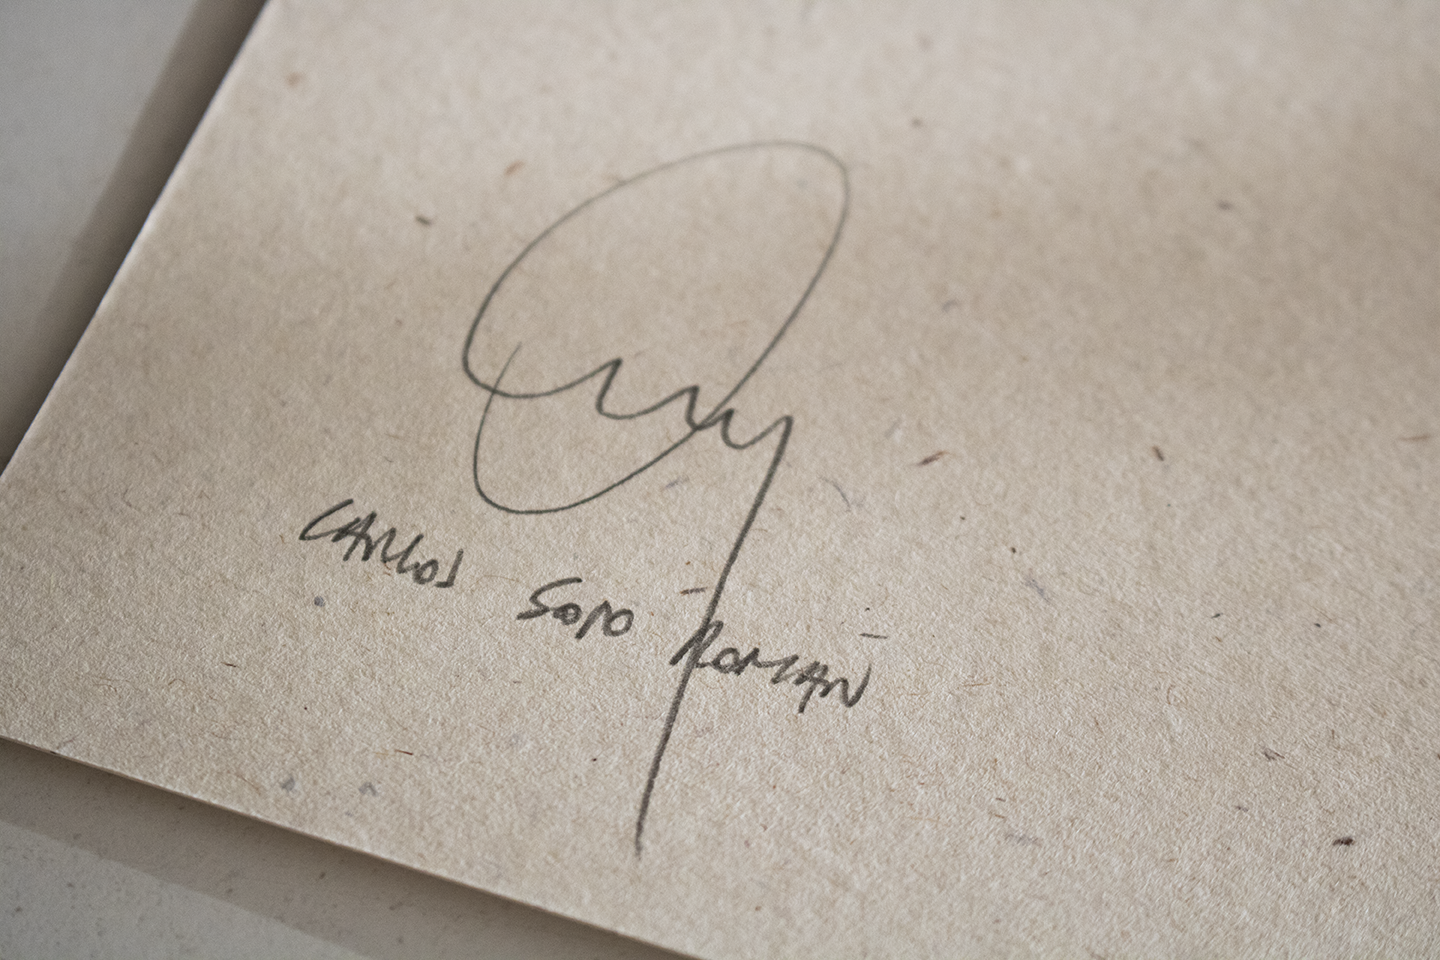 CARLOS SOTO ROMÁN